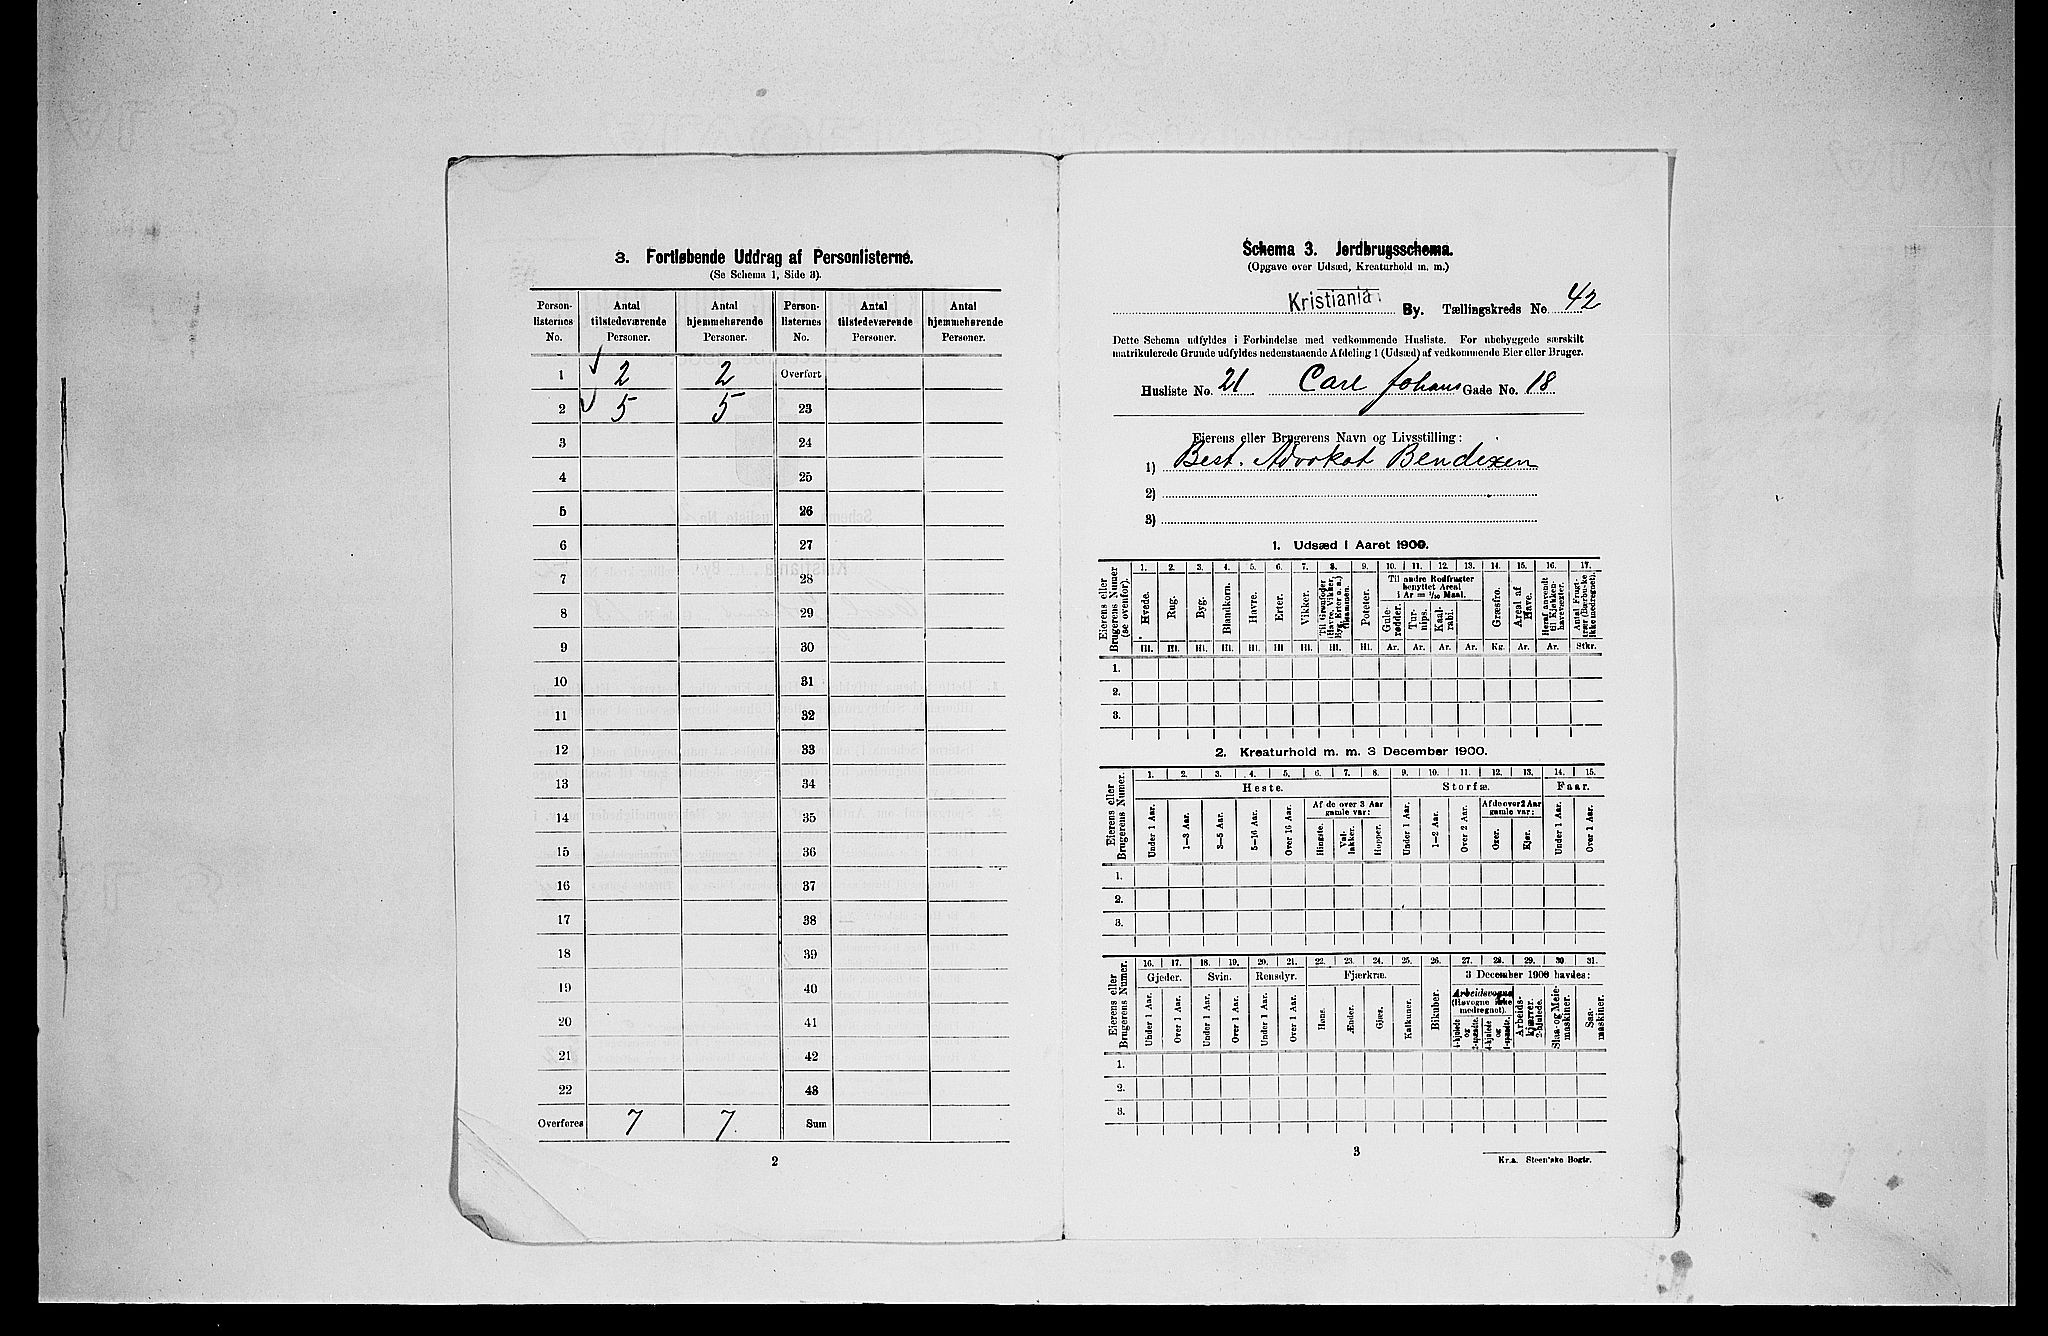 3. Fortløbende Uddrag af Personlisterne.
(Se Schema 1, Side 3).
Person-listernes No. | Antal tilstedeværende Personer. | Antal hjemmehørende Personer. | Person-listernes No. | Antal tilstedeværende Personer. | Antal hjemmehørende Personer.
1 | ✓ 2 | 2 | Overført
2 | ✓ 5 | 5 | 23
3 | 24
4 | 25
5 | 26
6 | 27
7 | 28
8 | 29
9 | 30
10 | 31
11 | 32
12 | 33
13 | 34
14 | 35
15 | 36
16 | 37
17 | 38
18 | 39
19 | 40
20 | 41
21 | 42
22 | 43
Overføres | 7 | 7 | Sum
2
Schema 3. Jordbrugsschema.
(Opgave over Udsæd, Kreaturhold m. m.)
Kristiania By. Tællingskreds No. 42
Dette Schema udfyldes i Forbindelse med vedkommende Husliste. For ubebyggede særskilt
matrikulerede Grunde udfyldes nedenstaaende Afdeling 1 (Udsæd) af vedkommende Eier eller Bruger.
Husliste No. 21 Carl Johans Gade No. 18
Eierens eller Brugerens Navn og Livsstilling:
1) Best. Advokat Bendixen
2)
3)
1. Udsæd i Aaret 1900.
Eierens eller Brugerens Numer (se ovenfor).
1. 2. 3. 4. 5. 6. 7. 8. 9. 10. 11. 12. 13. 14. 15. 16. 17.
Hvede. Rug. Byg. Blandkorn. Havre. Erter. Vikker. Til Grønfoder (Havre, Vikker, Byg, Erter o. a.) tilsammen. Poteter.
Til andre Rodfrugter benyttet Areal i Ar = 1/10 Maal.
Gule-rødder. Tur-nips. Kaal-rabi.
Græsfrø. Areal af Have. Heraf anvendt til Kjøkken-havevæxter. Antal Frugt-trær (Bærbuske ikke medregnet).
Hl. Hl. Hl. Hl. Hl. Hl. Hl. Hl. Hl. Ar. Ar. Ar. Ar. Kg. Ar. Ar. Stkr.
1.
2.
3.
2. Kreaturhold m. m. 3 December 1900.
Eierens eller Brugerens Numer.
1. 2. 3. 4. 5. 6. 7. 8. 9. 10. 11. 12. 13. 14. 15.
Heste. Storfæ. Faar.
Under 1 Aar. 1–3 Aar. 3–5 Aar. 5–16 Aar. Over 16 Aar.
Af de over 3 Aar gamle var:
Hingste. Val-lakker. Hopper.
Under 1 Aar. 1–2 Aar. Over 2 Aar.
Af de over 2 Aar gamle var:
Oxer. Kjør.
Under 1 Aar. Over 1 Aar.
1.
2.
3.
Eierens eller Brugerens Numer.
16. 17. 18. 19. 20. 21. 22. 23. 24. 25. 26. 27. 28. 29. 30 31.
Gjeder. Svin. Rensdyr. Fjærkræ. 3 December 1900 havdes:
Under 1 Aar. Over 1 Aar. Under 1 Aar. Over 1 Aar. Under 1 Aar. Over 1 Aar. Høns. Ænder. Gjæs. Kalkuner. Bikuber.
Arbeidsvogne (Høvogne ikke medregnet).
4-hjulede og 2-spændte. 4-hjulede og 1-spændte.
Arbeids-kjærrer, 2-hjulede. Slaa- og Meie-maskiner. Saa-maskiner.
1.
2.
3.
3
Kr.a. Steen'ske Bogtr.